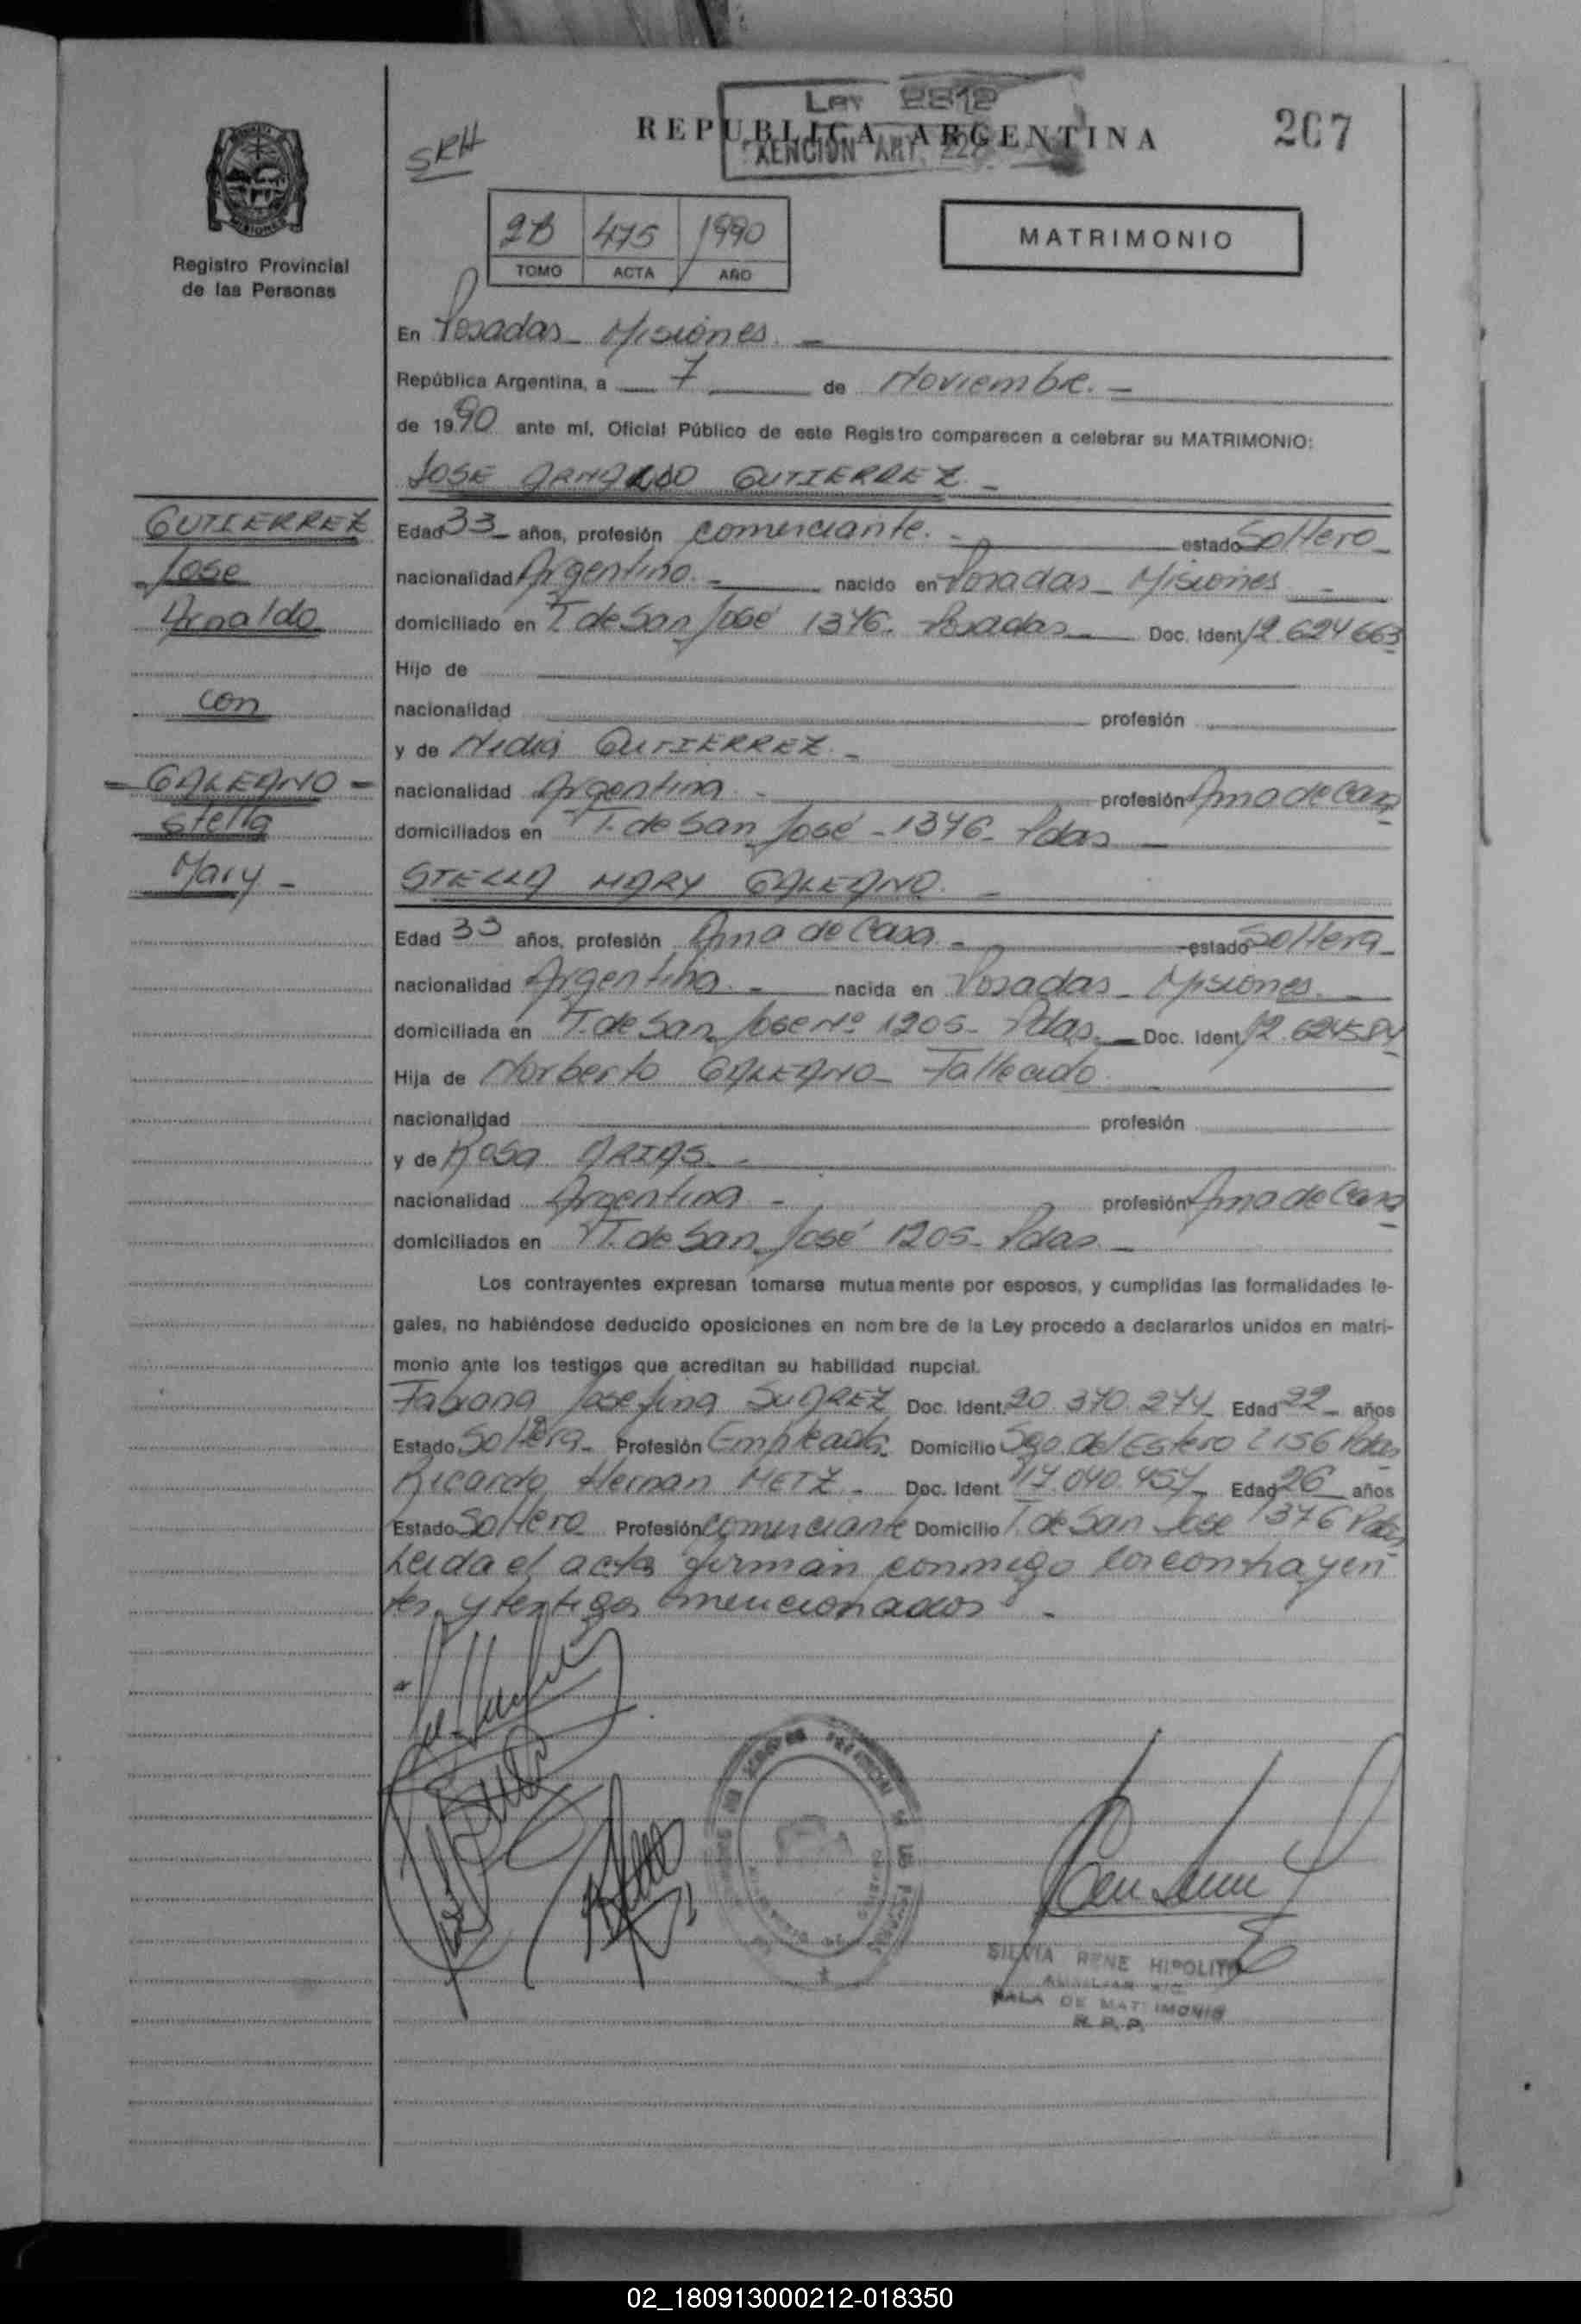 Ley 2812
REPUBLICA ARGENTINA
EXENCION ART. 22
207
SRH
2B 475 1990
TOMO ACTA AÑO
MATRIMONIO
Registro Provincial
de las Personas
En Posadas - Misiones. -
República Argentina, a 7 de Noviembre. -
de 1990 ante mí, Oficial Público de este Registro comparecen a celebrar su MATRIMONIO:
JOSE ARNALDO GUTIERREZ. -
GUTIERREZ
Jose
Arnaldo
con
- GALEANO -
Stella
Mary -
Edad 33 - años, profesión comerciante. - estado Soltero -
nacionalidad Argentino. - nacido en Posadas - Misiones -
domiciliado en T. de San José 1376. Posadas - Doc. Ident 12.624663
Hijo de
nacionalidad profesión
y de Nidia GUTIERREZ. -
nacionalidad Argentina. - profesión Ama de Casa
domiciliados en T. de San José - 1376 - Pdas -
STELLA MARY GALEANO. -
Edad 33 años, profesión Ama de Casa. - estado Soltera -
nacionalidad Argentina. - nacida en Posadas - Misiones. -
domiciliada en T. de San Jose Nº 1205 - Pdas. - Doc. Ident 12.624584
Hija de Norberto GALEANO - Fallecido.
nacionalidad profesión
y de Rosa ARIAS. -
nacionalidad Argentina - profesión Ama de Casa
domiciliados en T. de San José 1205 - Pdas -
Los contrayentes expresan tomarse mutuamente por esposos, y cumplidas las formalidades le-
gales, no habiéndose deducido oposiciones en nombre de la Ley procedo a declararlos unidos en matri-
monio ante los testigos que acreditan su habilidad nupcial.
Fabiana Josefina SUAREZ Doc. Ident. 20.370.274 - Edad 22 - años
Estado Soltera - Profesión Empleada. Domicilio Sgo. del Estero 2156 Pdas
Ricardo Hernan METZ - Doc. Ident 17.040.457 - Edad 26 años
Estado Soltero Profesión comerciante Domicilio T. de San Jose 1376 Pdas
Leida el acta firman conmigo los contrayen
tes y testigos mencionados -
SILVIA RENE HIPOLITO
SALA DE MATRIMONIO
R. P. P.
02_180913000212-018350